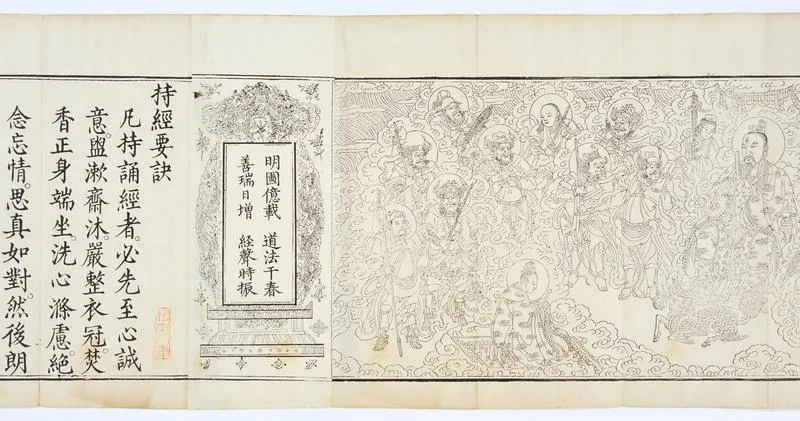 明國億載　道法千春
善瑞日增　経聲時振
持經要訣
凡持誦經者。必先至心誠
意。盥漱齋沐。嚴整衣冠。焚
香正身端坐。洗心滌慮。絕
念忘情。思真如對。然後朗